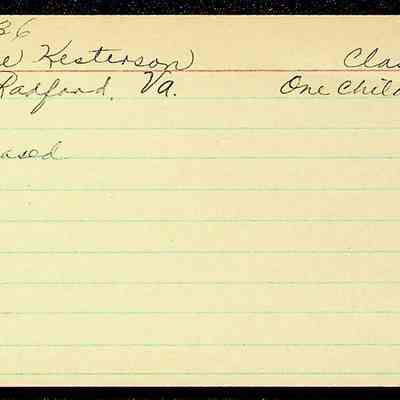 36
e Kesterson) Clas
Radford, Va. One Chil
ased